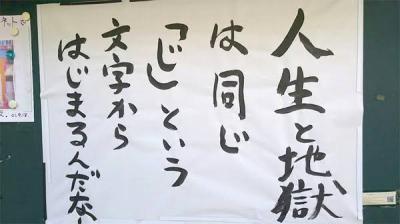 人生と地獄
は同じ
「じ」という
文字から
はじまるんだな
ネットで